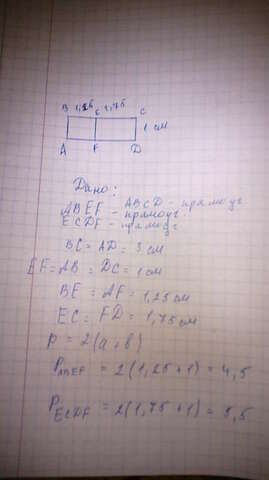 B 1,25 E 1,75 C
1 см
A F D
Дано:
ABEF - ABCD - прямоуг
ECDF - прямоуг
BC = AD = 3 см
EF = AB = DC = 1 см
BE = AF = 1,25 см
EC = FD = 1,75 см
P = 2(a+b)
P ABEF = 2(1,25+1) = 4,5
P ECDF = 2(1,75+1) = 5,5